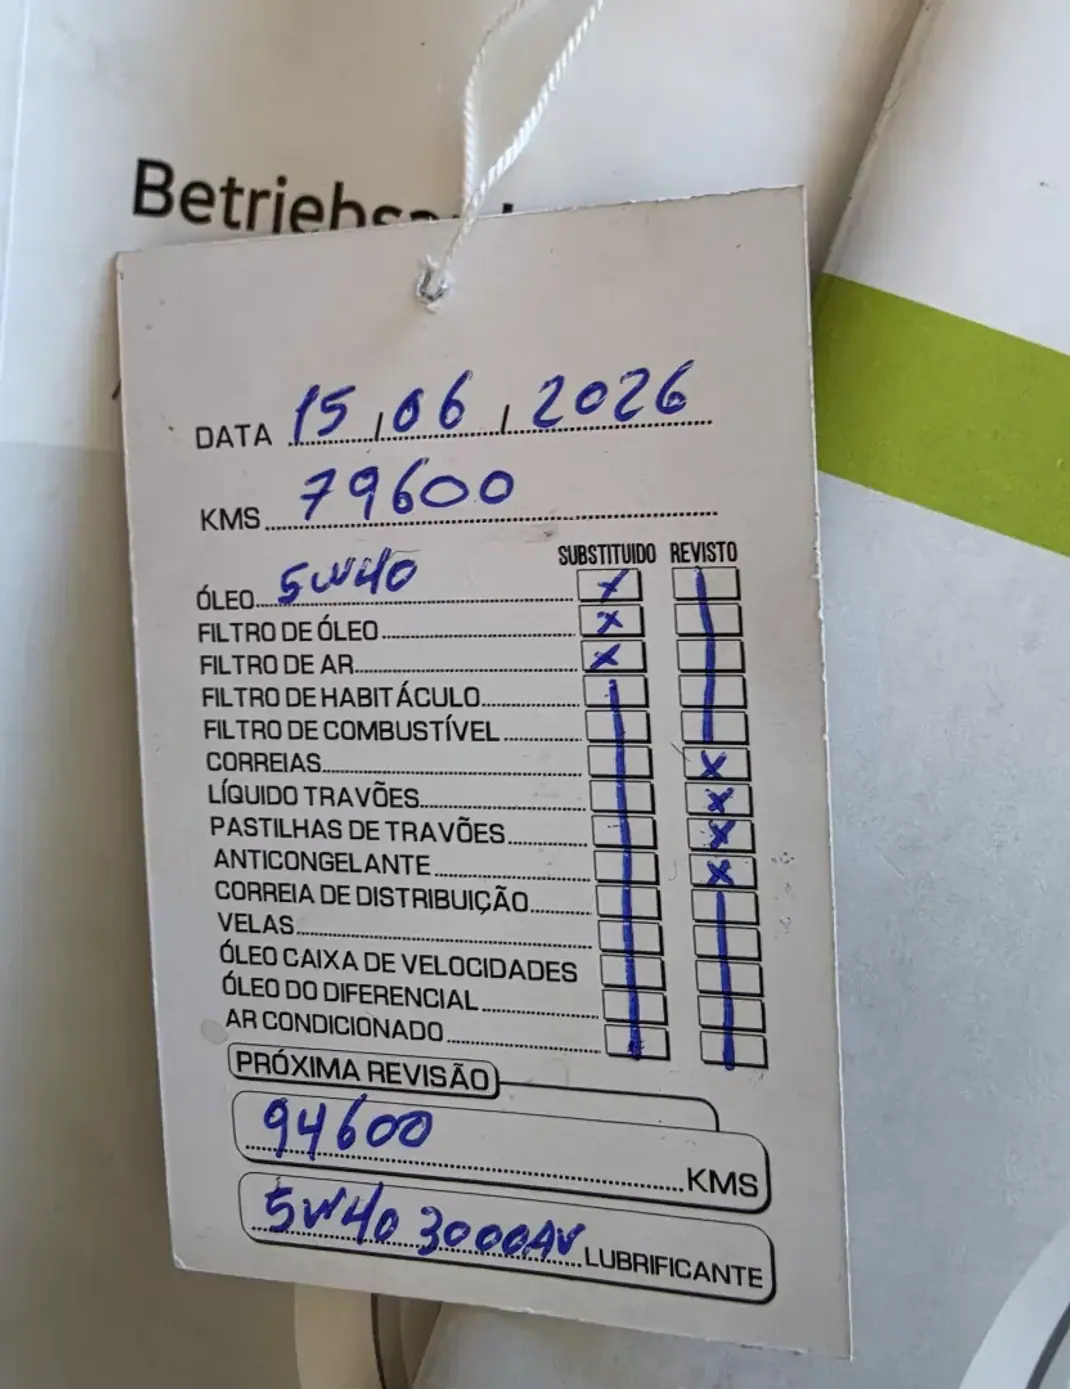 Betriebs
DATA 15,06,2026
KMS 79600
SUBSTITUIDO REVISTO
ÓLEO 5W40 X
FILTRO DE ÓLEO X
FILTRO DE AR X
FILTRO DE HABITÁCULO
FILTRO DE COMBUSTÍVEL
CORREIAS X
LÍQUIDO TRAVÕES X
PASTILHAS DE TRAVÕES X
ANTICONGELANTE X
CORREIA DE DISTRIBUIÇÃO
VELAS
ÓLEO CAIXA DE VELOCIDADES
ÓLEO DO DIFERENCIAL
AR CONDICIONADO
PRÓXIMA REVISÃO
94600 KMS
5W40 3000AV LUBRIFICANTE